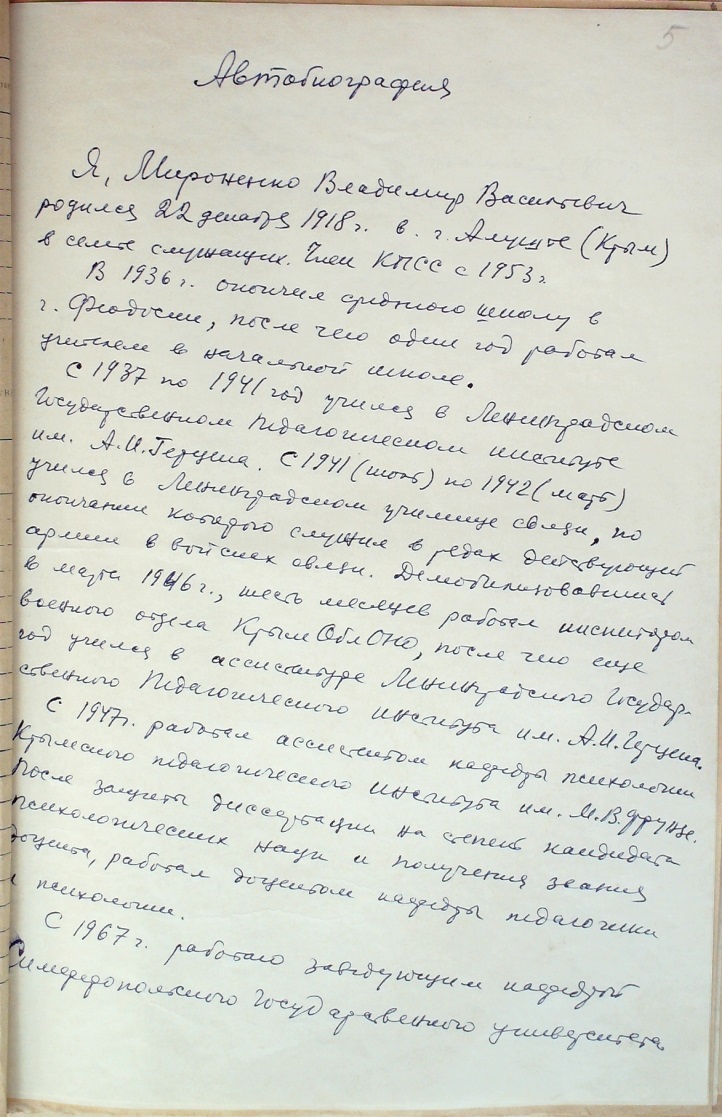 5
Автобиография
Я, Мироненко Владимир Васильевич
родился 22 декабря 1918 г. в г. Алуште (Крым)
в семье служащих. Член КПСС с 1953 г.
В 1936 г. окончил среднюю школу в
г. Феодосии, после чего один год работал
учителем в начальной школе.
С 1937 по 1941 год учился в Ленинградском
Государственном педагогическом институте
им. А.И. Герцена. С 1941 (июнь) по 1942 (март)
учился в Ленинградском училище связи, по
окончании которого служил в рядах действующей
армии в войсках связи. Демобилизовавшись
в марте 1946 г., шесть месяцев работал инспектором
военного отдела КрымОблОНО, после чего еще
год учился в ассистентуре Ленинградского Государ-
ственного Педагогического института им. А.И. Герцена.
С 1947 г. работал ассистентом кафедры психологии
Крымского педагогического института им. М.В. Фрунзе.
После защиты диссертации на степень кандидата
психологических наук и получения звания
доцента, работал доцентом кафедры педагогики
и психологии.
С 1967 г. работаю заведующим кафедрой
Симферопольского Государственного университета.